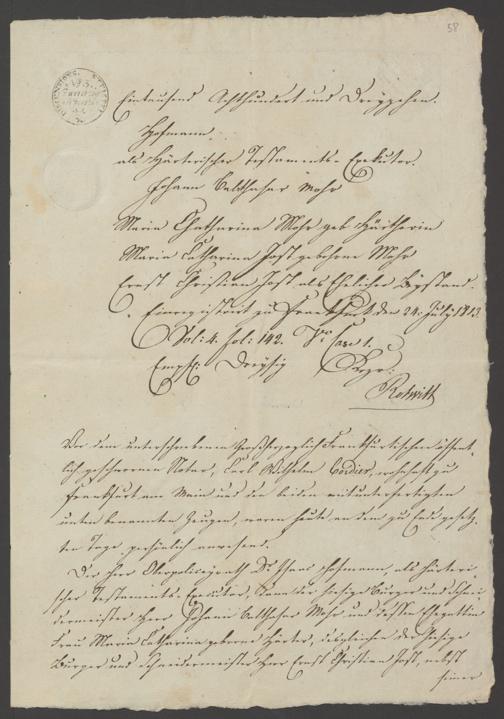 58
Eintausend Achthundert und Dreyzehen.
Hofmann.
als Härterischer Testaments-Exekutor.
Johann Balthasar Mohr
Maria Chatharina Mohr geb Härtherin
Maria Catharina Jost gebohrne Mohr
Ernst Christian Jost als Ehelicher Beystand.
Einregistrirt zu Frankfurt den 24. July 1813.
Vol: 4. fol: 142. Vo. Case 1.
Empf: Dreysig Kzr:
Rotwitt
Vor dem unterschriebenen Großherzoglich Frankfurtischen öffent-
lich geschwornen Notar, Carl Wilhelm Cordier, wohnhaft zu
Frankfurt am Main und den beiden mitunterfertigten
unten benannten Zeugen, waren heute an dem zu Ende gesetz-
ten Tage persönlich anwesend.
Der Herr Oberpolizeyrath Dr. Hofmann, als Härteri-
scher Testaments-Exekutor, dann der hiesige Bürger und Schnei-
dermeister Herr Johann Balthasar Mohr und dessen Ehegattin
Frau Maria Catharina geborne Härter, desgleichen der hiesige
Bürger und Schneidermeister Herr Ernst Christian Jost, nebst
seiner